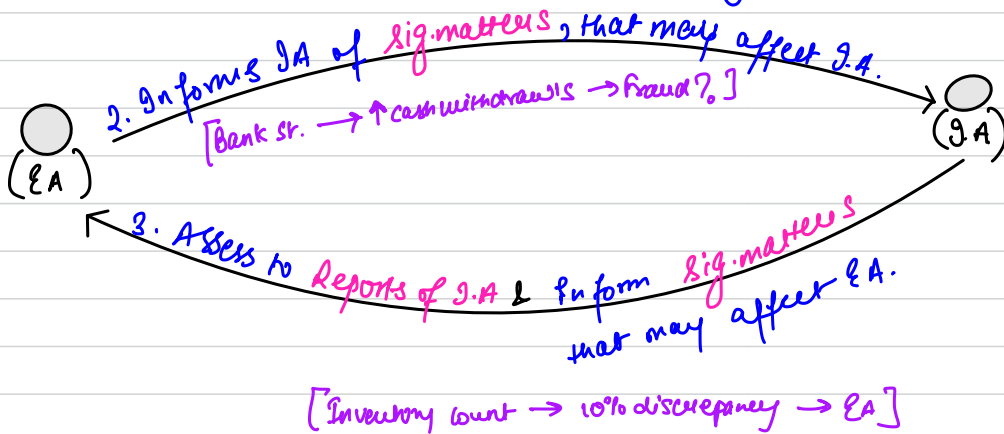 2. Informs IA of sig. matters, that may affect I.A.
[Bank st. → ↑ cash withdraw's → Fraud?]
(EA)
(I.A)
3. Assess to Reports of I.A & Inform sig. matters
that may affect EA.
[Inventory count → 10% discrepancy → EA]